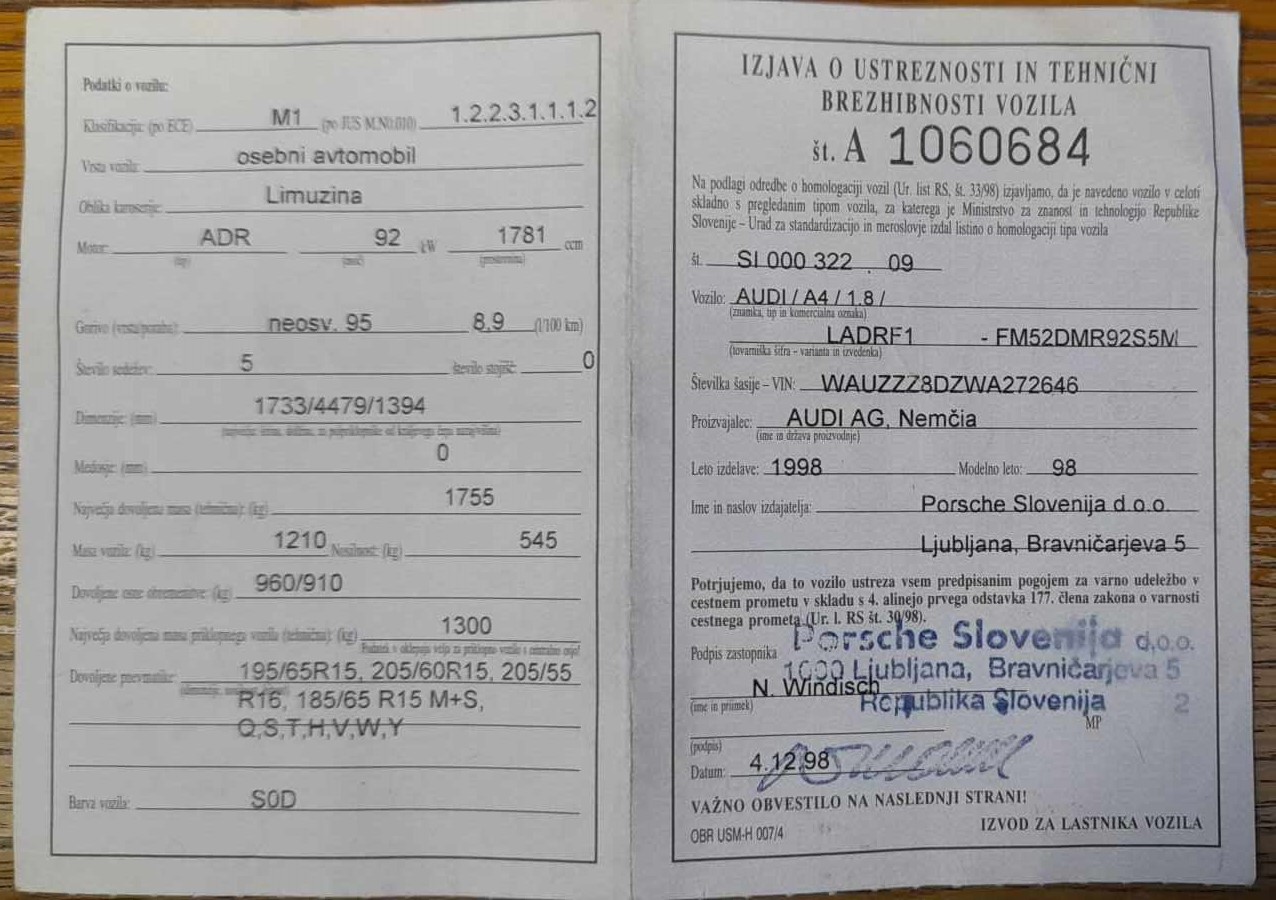 Podatki o vozilu:
Klasifikacija: (po ECE) M1 (po JUS M.N0.010) 1.2.2.3.1.1.1.2
Vrsta vozila: osebni avtomobil
Oblika karoserije: Limuzina
Motor: ADR 92 kW 1781 ccm
(tip) (moč) (prostornina)
Gorivo (vrsta/poraba): neosv. 95 8,9 (l/100 km)
Število sedežev: 5 število stojišč: 0
Dimenzije: (mm) 1733/4479/1394
0
Medosje: (mm)
Največja dovoljena masa (tehnična): (kg) 1755
Masa vozila: (kg) 1210 Nosilnost: (kg) 545
Dovoljene osne obremenitve: (kg) 960/910
Največja dovoljena masa priklopnega vozila (tehnična): (kg) 1300
Dovoljene pnevmatike: 195/65R15, 205/60R15, 205/55
R16, 185/65 R15 M+S,
Q,S,T,H,V,W,Y
Barva vozila: S0D
IZJAVA O USTREZNOSTI IN TEHNIČNI
BREZHIBNOSTI VOZILA
št. A 1060684
Na podlagi odredbe o homologaciji vozil (Ur. list RS, št. 33/98) izjavljamo, da je navedeno vozilo v celoti
skladno s pregledanim tipom vozila, za katerega je Ministrstvo za znanost in tehnologijo Republike
Slovenije – Urad za standardizacijo in meroslovje izdal listino o homologaciji tipa vozila
št. SI 000 322 . 09
Vozilo: AUDI / A4 / 1.8 /
(znamka, tip in komercialna oznaka)
LADRF1 - FM52DMR92S5M
(tovarniška šifra - varianta in izvedenka)
Številka šasije – VIN: WAUZZZ8DZWA272646
Proizvajalec: AUDI AG, Nemčia
(ime in država proizvodnje)
Leto izdelave: 1998 Modelno leto: 98
Ime in naslov izdajatelja: Porsche Slovenija d.o.o.
Ljubljana, Bravničarjeva 5
Potrjujemo, da to vozilo ustreza vsem predpisanim pogojem za varno udeležbo v
cestnem prometu v skladu s 4. alinejo prvega odstavka 177. člena zakona o varnosti
cestnega prometa (Ur. l. RS št. 30/98).
Porsche Slovenija d.o.o.
Podpis zastopnika 1000 Ljubljana, Bravničarjeva 5
N. Windisch
Republika Slovenija 2
(ime in priimek)
MP
(podpis)
Datum: 4.12.98
VAŽNO OBVESTILO NA NASLEDNJI STRANI!
IZVOD ZA LASTNIKA VOZILA
OBR USM-H 007/4